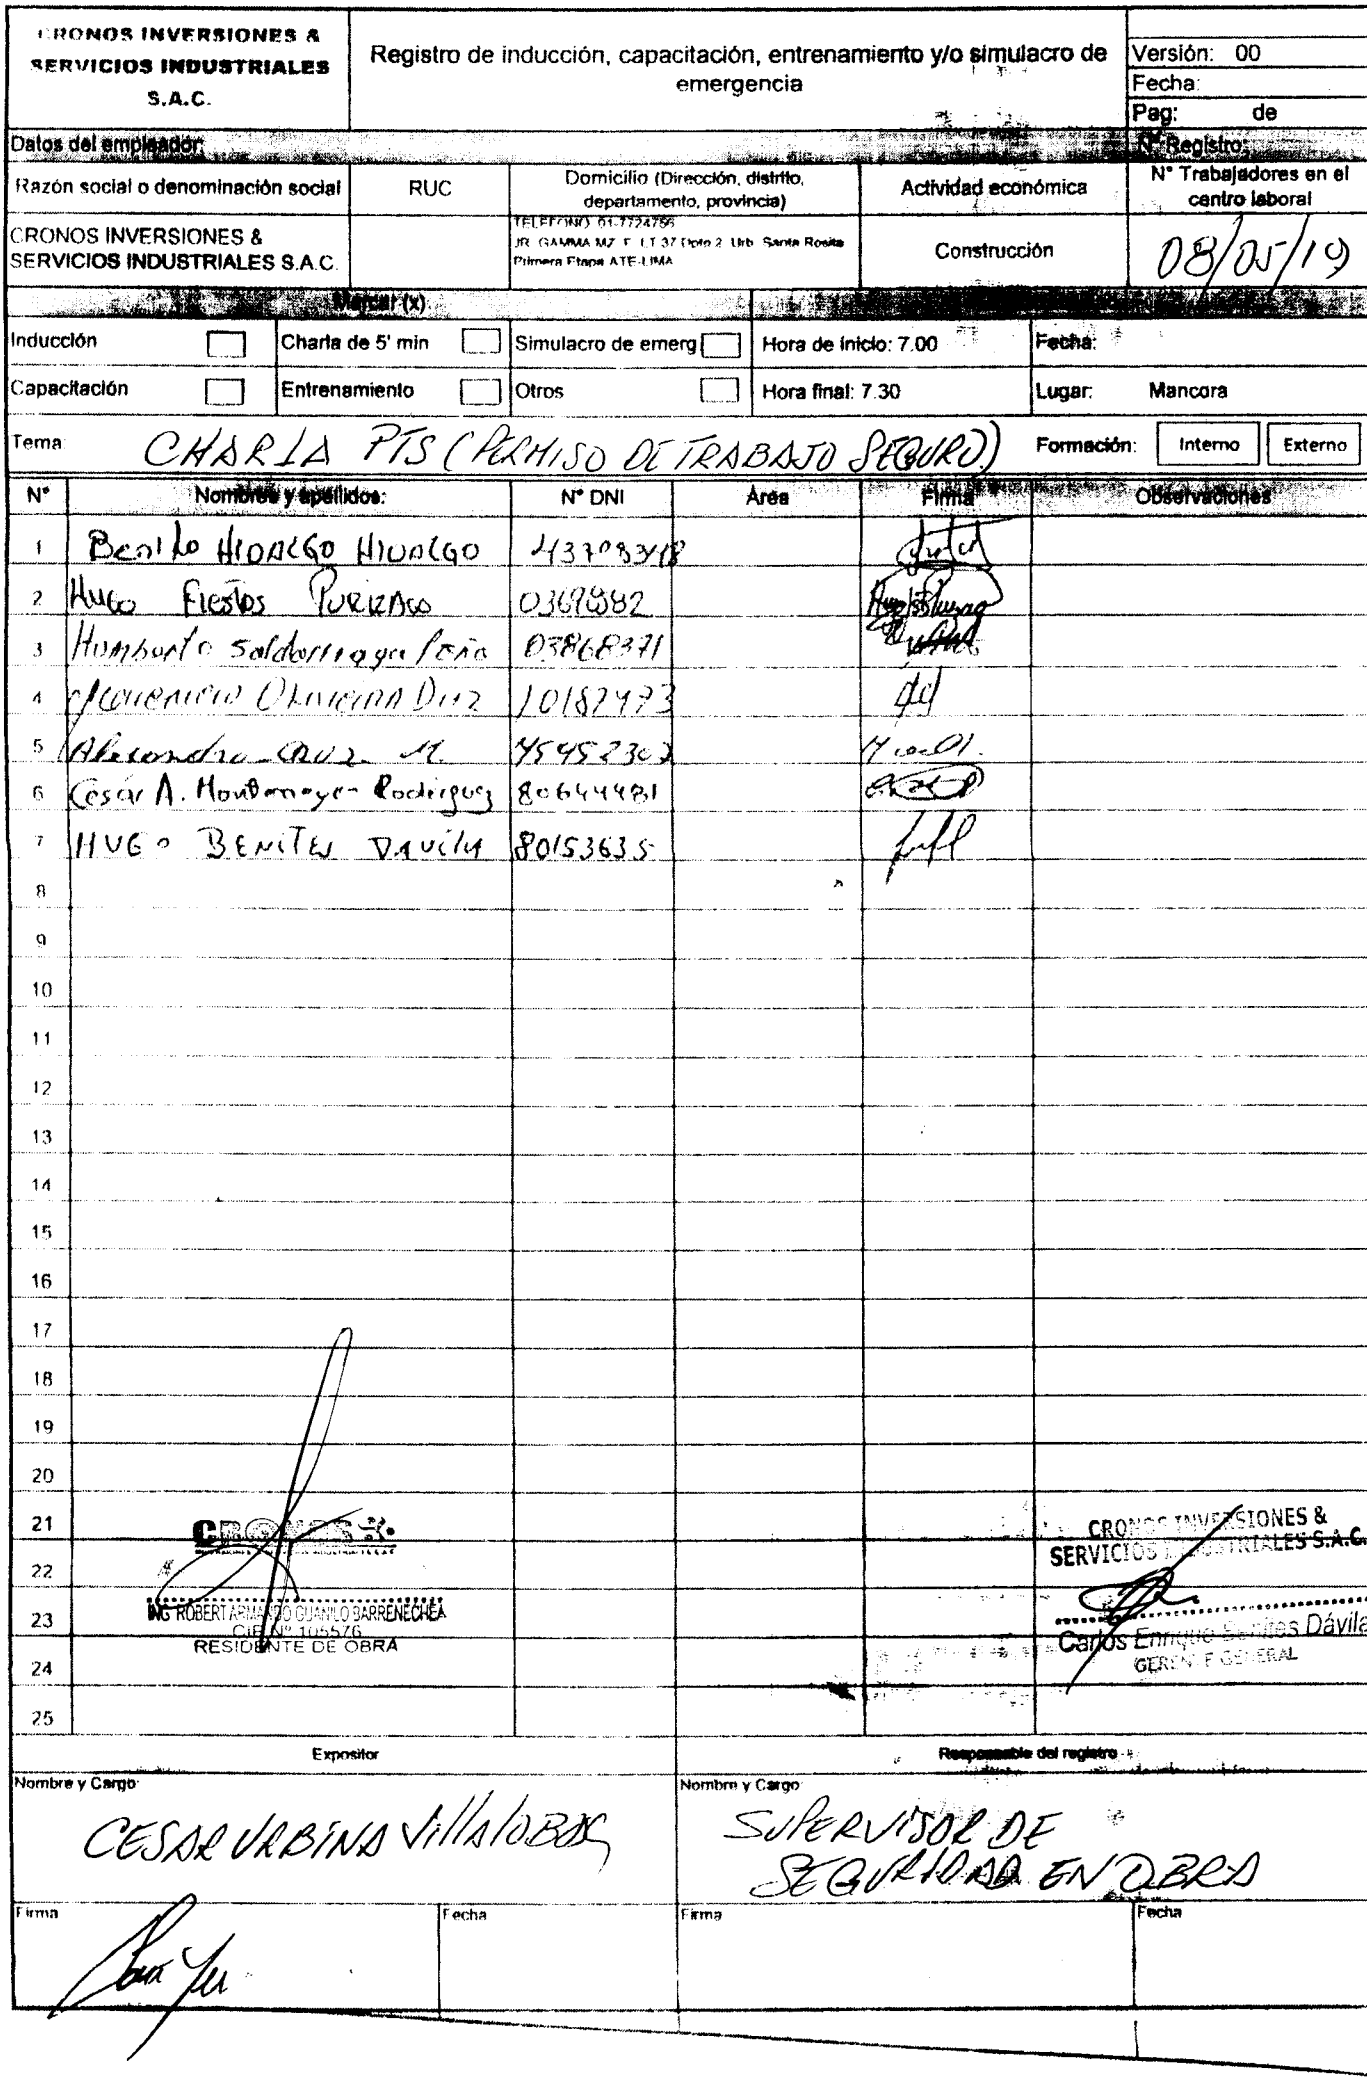 CRONOS INVERSIONES &
SERVICIOS INDUSTRIALES
S.A.C.
Registro de inducción, capacitación, entrenamiento y/o simulacro de
emergencia
Versión: 00
Fecha:
Pag: de
Datos del empleador: N° Registro:
Razón social o denominación social RUC Domicilio (Dirección, distrito, departamento, provincia) Actividad económica N° Trabajadores en el centro laboral
CRONOS INVERSIONES &
SERVICIOS INDUSTRIALES S.A.C.
TELEFONO 01-7724756
JR. GAMMA MZ. F LT 37 Dpto 2 Urb. Santa Rosita
Primera Etapa ATE-LIMA
Construcción
08/05/19
Marcar (x)
Inducción Charla de 5' min Simulacro de emerg Hora de inicio: 7.00 Fecha:
Capacitación Entrenamiento Otros Hora final: 7.30 Lugar: Mancora
Tema: CHARLA PTS (PERMISO DE TRABAJO SEGURO) Formación: Interno Externo
N° Nombres y apellidos: N° DNI Área Firma Observaciones
1 Benito HIDALGO HIDALGO
2 Hugo Fiestos
3 Humberto Saldarriaga Peña 03868371
4 10187473
5 Alexandro CRUZ M.
6 César A. Montemayor Rodriguez 80644481
7 HUGO BENITES DAVILA 80153635
8
9
10
11
12
13
14
15
16
17
18
19
20
21
22
23
24
25
CRONOS
ING ROBERT ARMANDO GUANILO BARRENECHEA
CIP Nº 105576
RESIDENTE DE OBRA
CRONOS INVERSIONES &
SERVICIOS INDUSTRIALES S.A.C.
Carlos Enrique Benites Dávila
GERENTE GENERAL
Expositor Responsable del registro
Nombre y Cargo: Nombre y Cargo:
CESAR URBINA VillALOBOS
SUPERVISOR DE
SEGURIDAD EN OBRA
Firma Fecha Firma Fecha